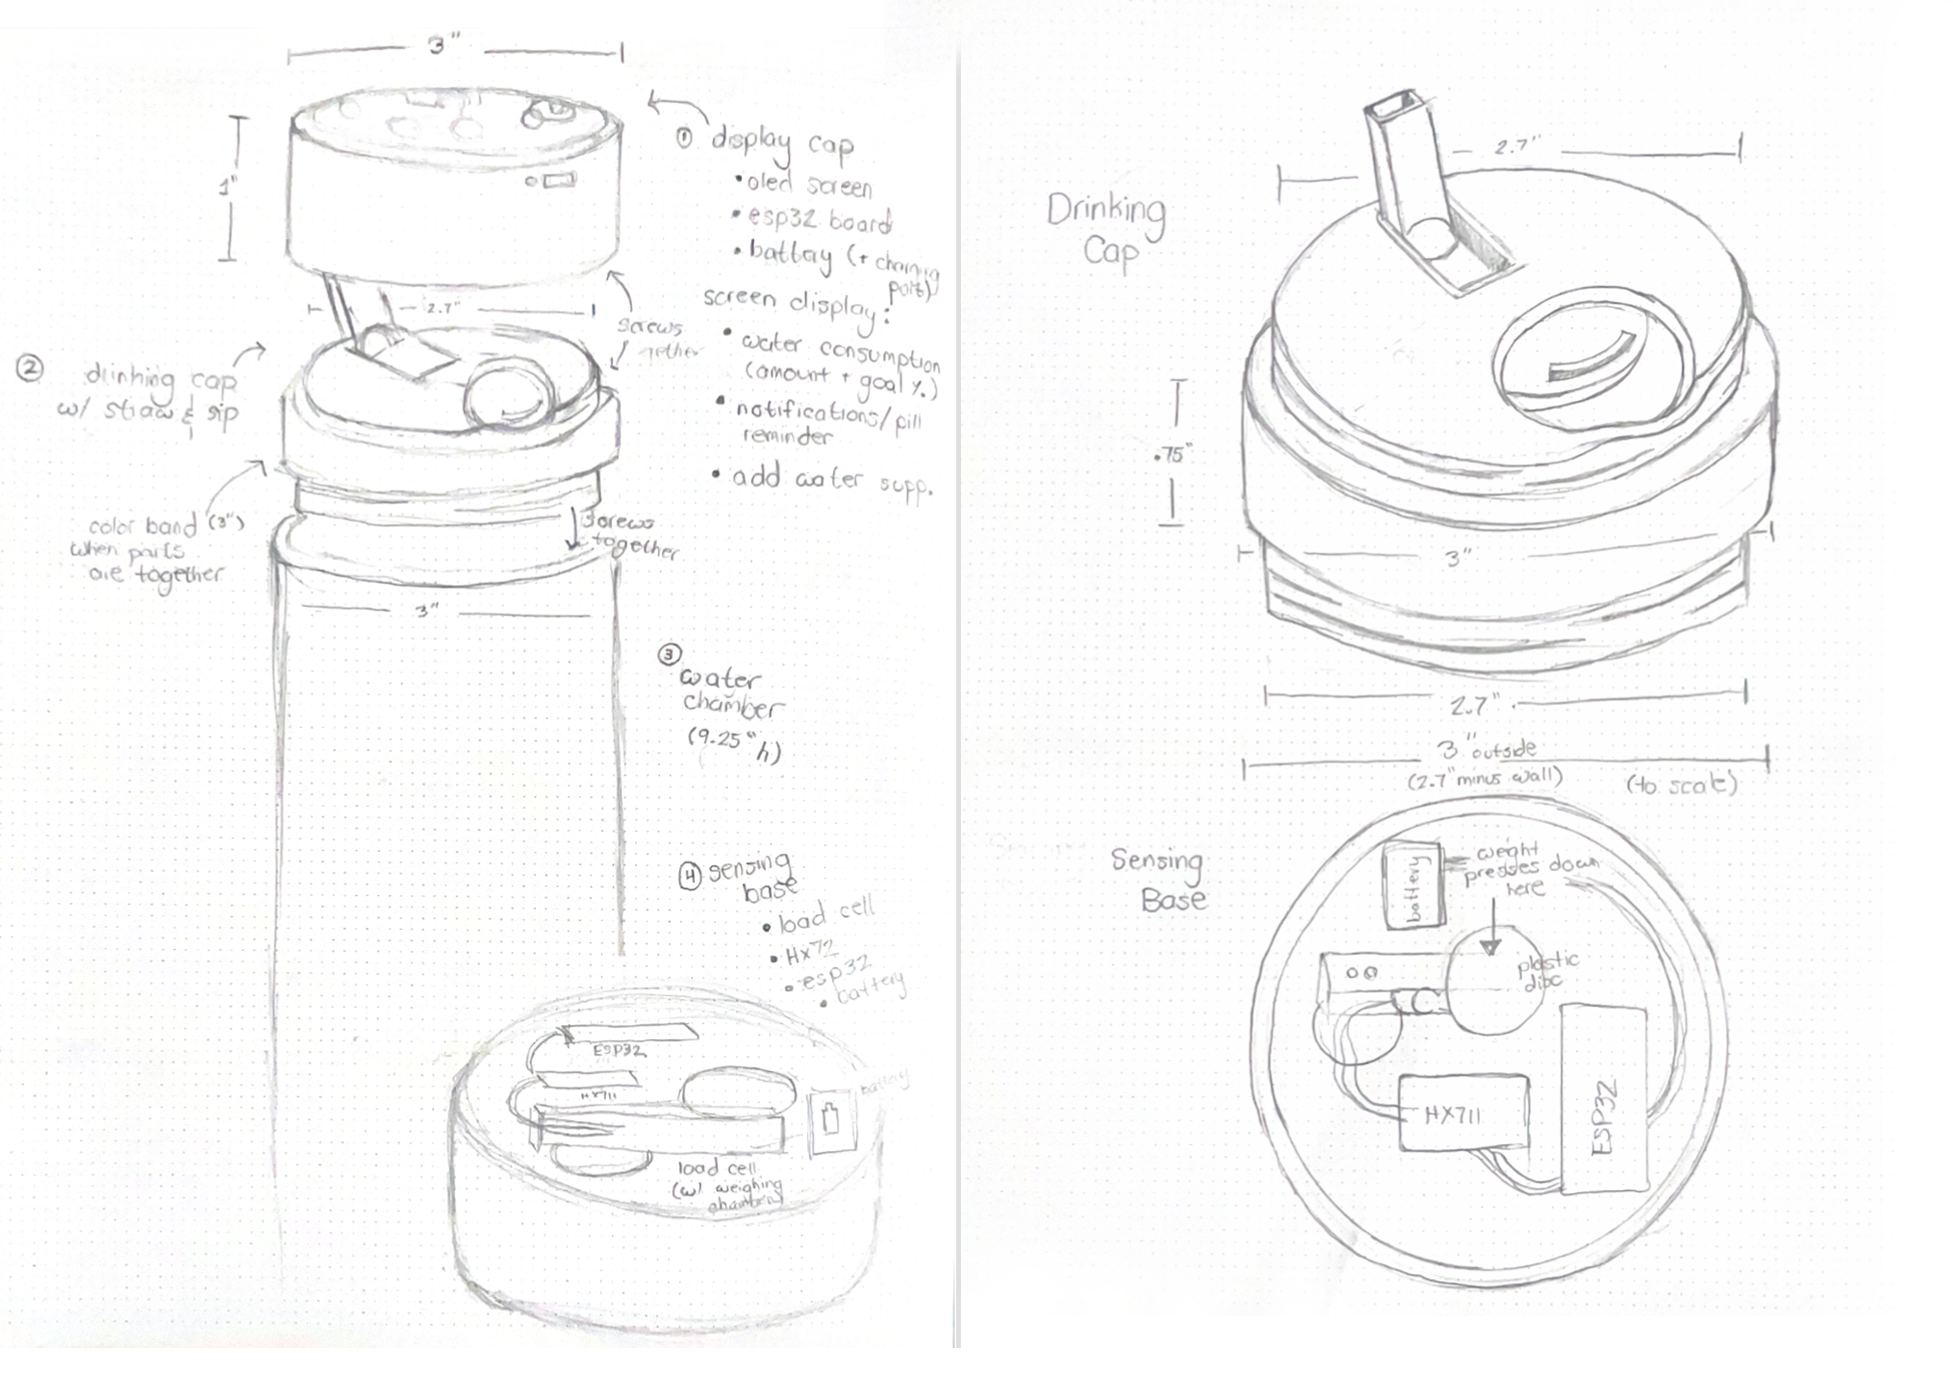 3"
1"
① display cap
• oled screen
• esp32 board
• battery (+ charging
port)
screen display:
• water consumption
(amount + goal %)
• notifications/pill
reminder
• add water supp.
2.7"
screws
② drinking cap
w/ straw & sip
color band (3")
when parts
are together
screws
together
3"
③
water
chamber
(9.25" h)
④ sensing
base
• load cell
• Hx72
• esp32
• battery
ESP32
HX711
battery
load cell
(w/ weighing
chamber)
Drinking
Cap
2.7"
.75"
3"
2.7"
3" outside
(2.7" minus wall)
(to scale)
Sensing
Base
battery
weight
presses down
here
plastic
disc
HX711
ESP32